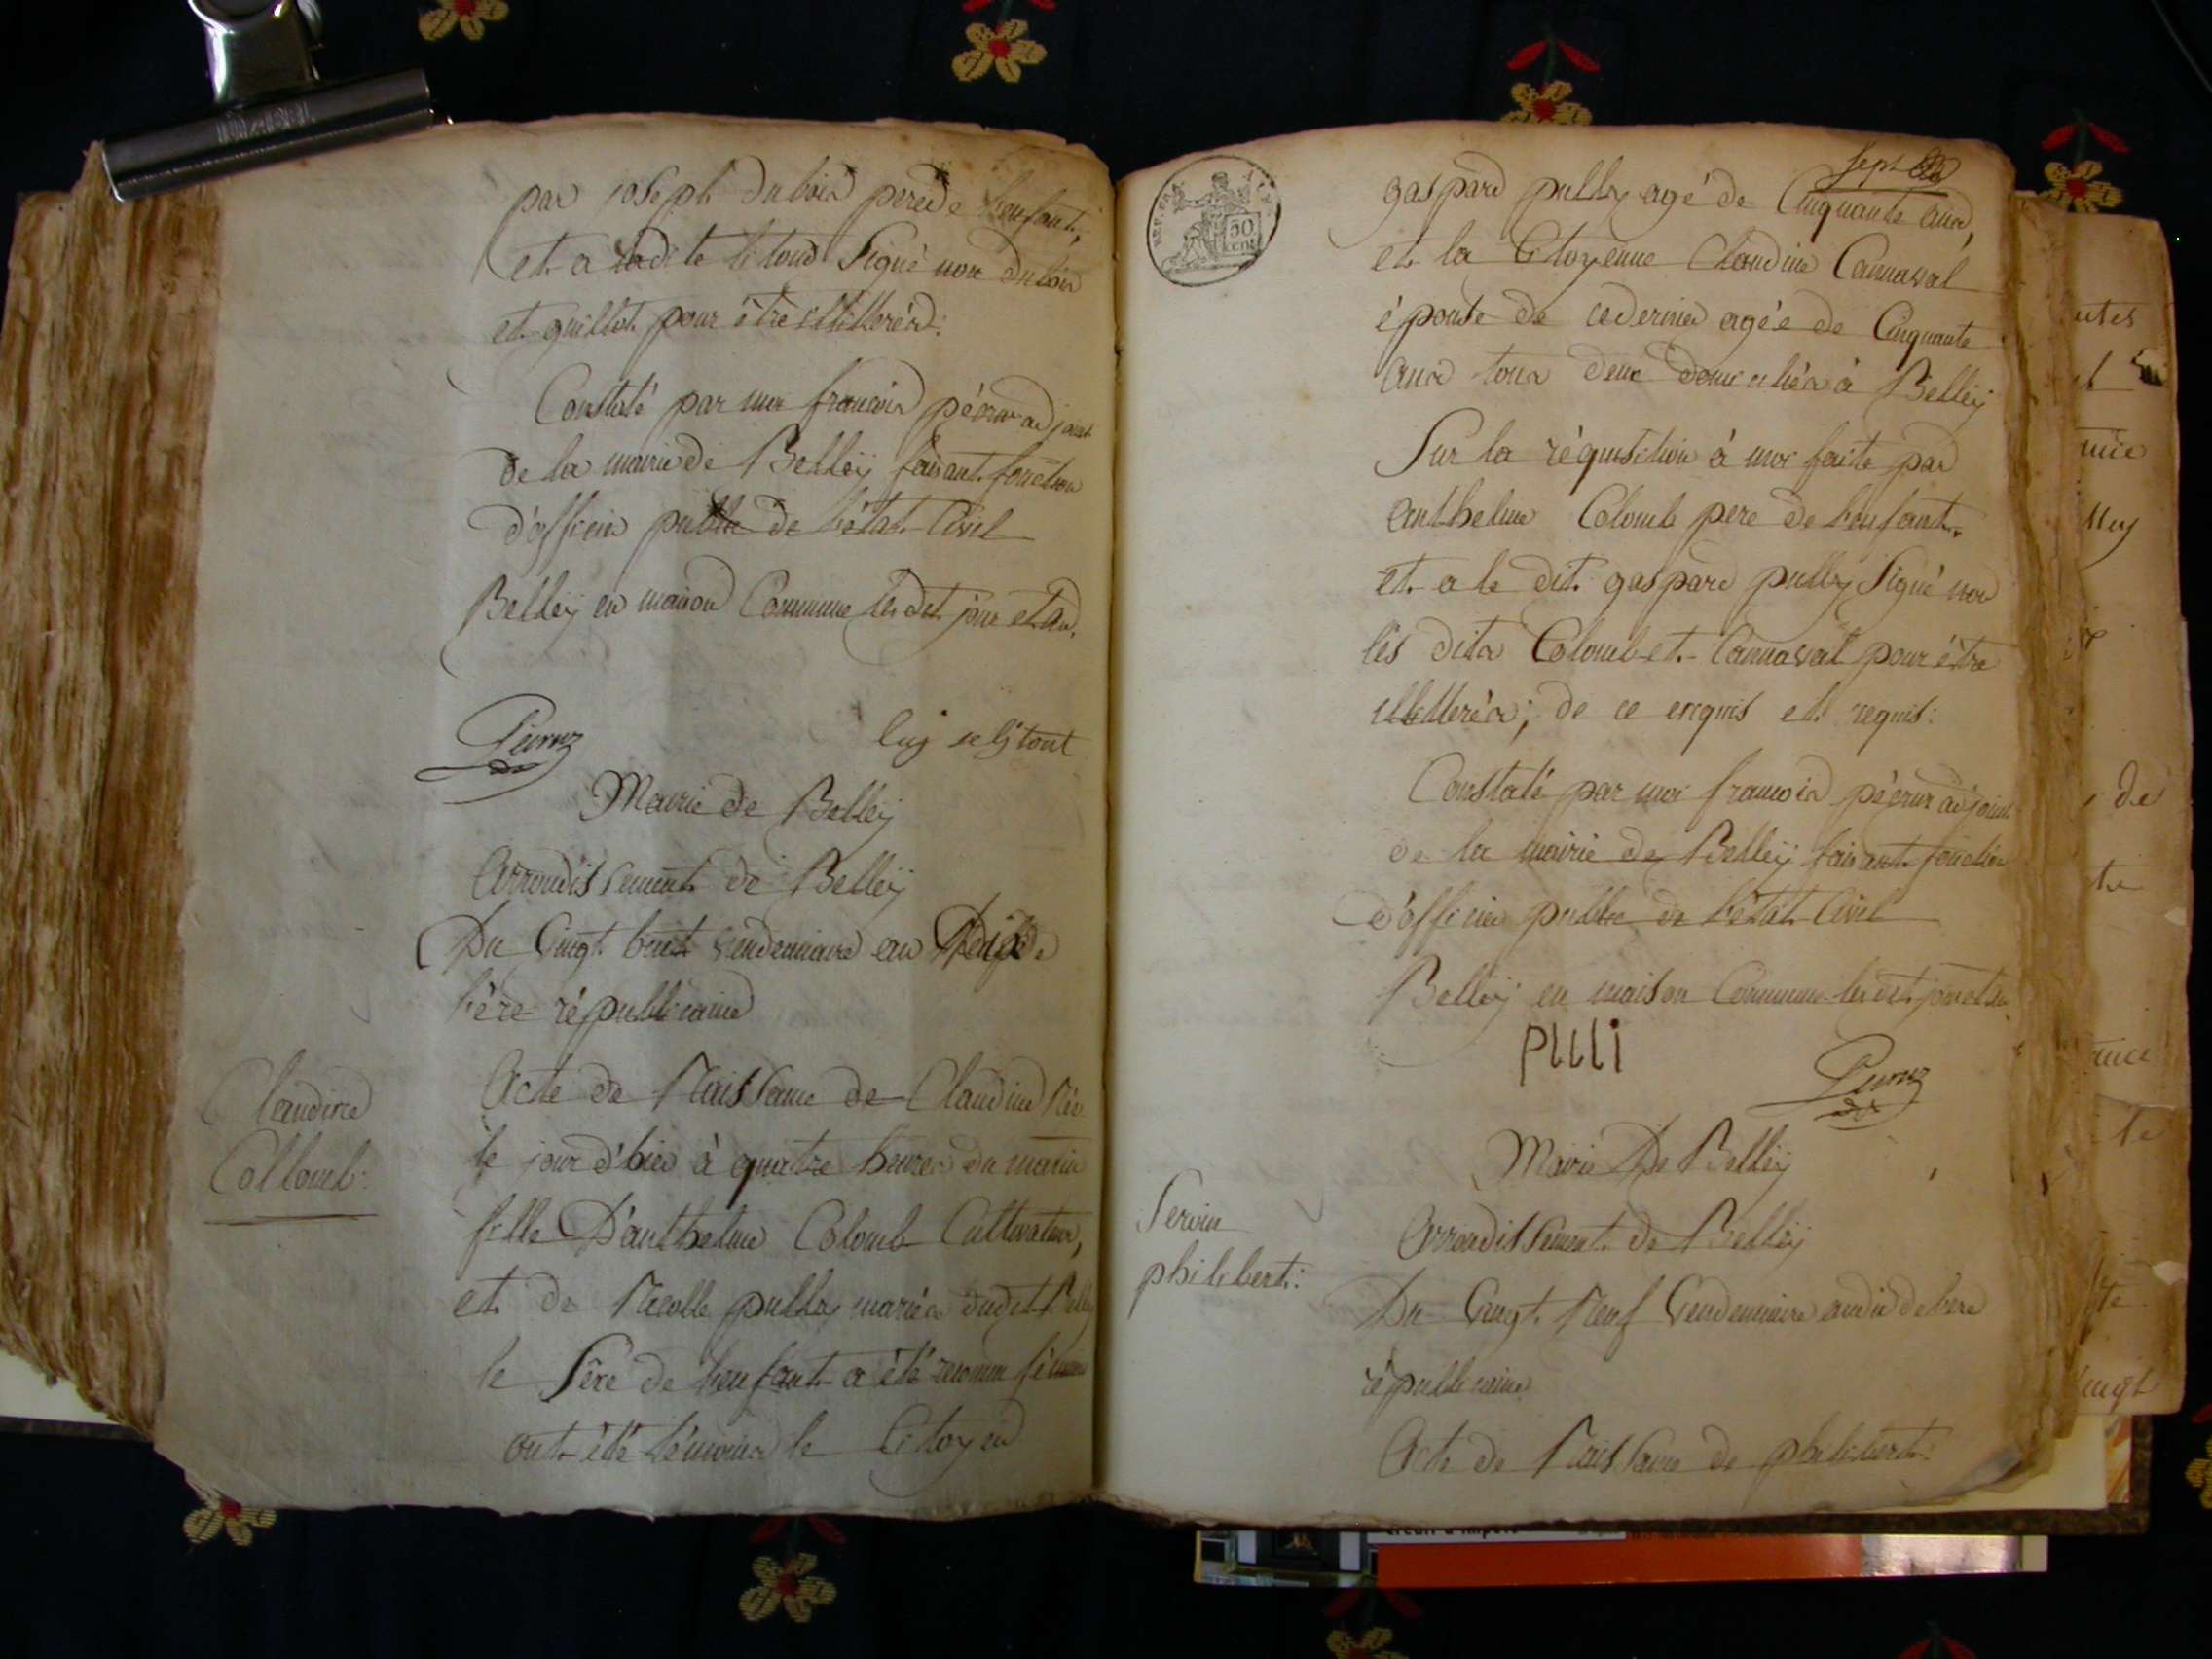 par joseph dubois pere de l'enfant,
et a ladite litoud signé non dubois
et guillot pour être illitterés:
Constaté par moi francois péeruz adjoint
de la mairie de Belley faisant fonction
d'officier public de l'état Civil
Belley en maison Commune les dit jour et an.
Peeruz
Mairie de Belley
Arrondissement de Belley
Du Vingt huit Vendemiaire an Dix de
l'ère républicaine
Claudine
Collomb:
Acte de Naissance de Claudine Née
le jour d'hier à quatre heures du matin
fille D'anthelme Colomb Cultivateur,
et de Nicolle pully mariés dudit Belley
le sexe de l'enfant a été reconnu féminin
ont été témoins le Citoyen
sept
gaspard pully agé de Cinquante ans,
et la Citoyenne Claudine Carnaval
épouse de ce dernier agée de Cinquante
ans tous deux domiciliés à Belley
Sur la réquisition à moi faite par
anthelme Colomb pere de l'enfant.
et a le dit gaspard pully signé non
les dits Colomb et Carnaval pour être
illitterés; de ce enquis et requis:
Constaté par moi francois péeruz adjoint
de la mairie de Belley faisant fonction
d'officier public de l'état Civil
Belley en maison Commune les dit jour et an.
PULLI
Peeruz
Mairie De Belley
Arrondissement de Belley
Servin
philibert:
Du Vingt Neuf Vendemiaire an dix de l'ere
républicaine
Acte de Naissance de philibert:
50
cent